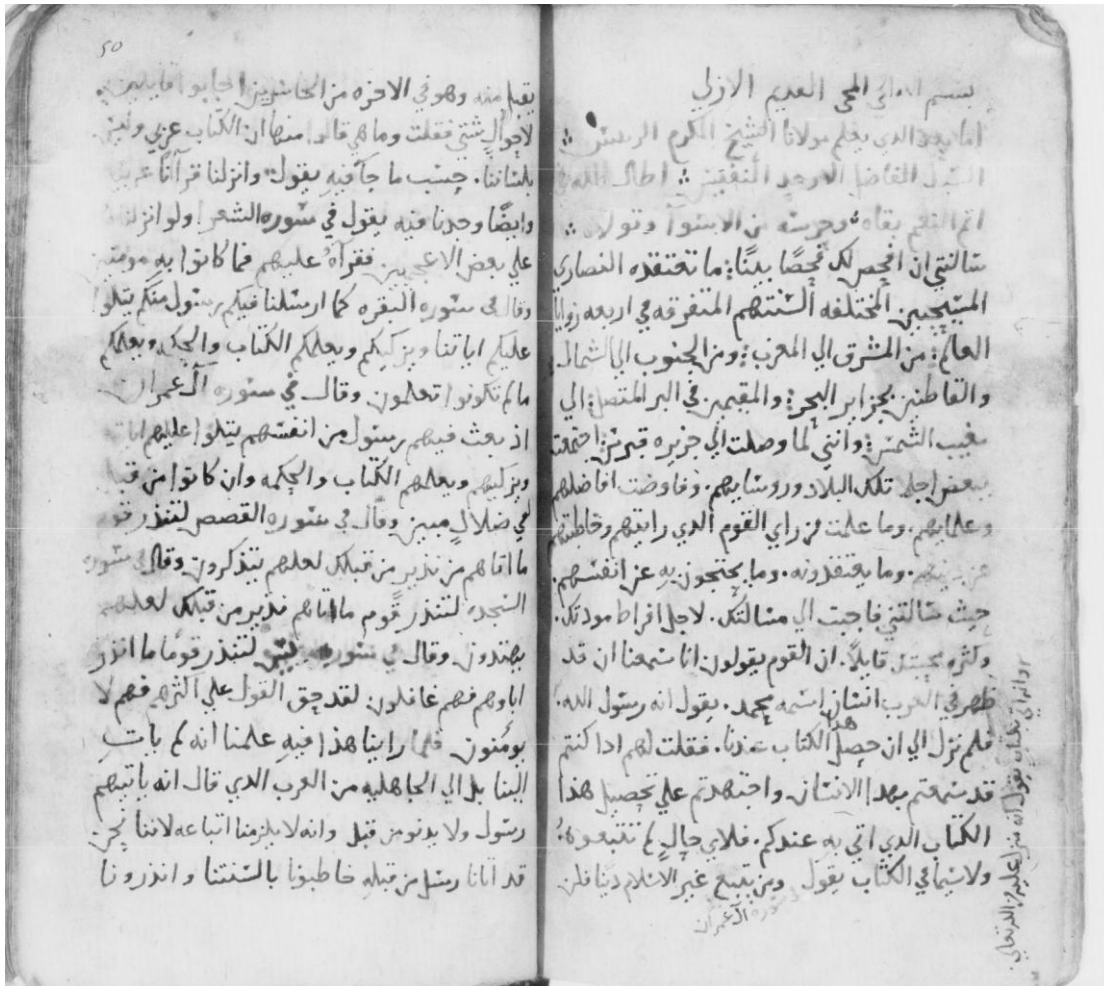 بسم الله الحي القديم الازلي
اما بعد الدي يعلم مولانا الشيخ المكرم الريس
السيد الفاضل الاوحد النفيس اطال الله
اتم النعم بقاه وحرسه من الاسوا وتولاه
سالتني ان افحص لك فحصًا بينًا ما تعتقده النصاري
المسيحيين المختلفه السنتهم المتفرقه في اربعه زوايا
العالم من المشرق الي المغرب ومن الجنوب الي الشمال
والقاطنين بجزاير البحر والمقيمين في البر المتصل الي
مغيب الشمس وانني لما وصلت الي جزيره قبرس اجتمعت
ببعض اجلا تلك البلاد وروسايهم. وفاوضت افاضلهم
وعلمايهم. وما علمت من راي القوم الدي رايتهم وخاطبتهم
عن دينهم. وما يعتقدونه. وما يحتجون به عن انفسهم.
حيث سالتني فاجبت الي مسالتك. لاجل افراط مودتك.
وكثره قايلاً. ان القوم يقولون انا سمعنا ان قد
ظهر في العرب انسان اسمه محمد. يقول انه رسول الله.
فلم نزل الي ان حصل هذا الكتاب عندنا. فقلت لهم ادا كنتم
قد سمعتم بهدا الانسان. واجتهدتم علي تحصيل هدا
الكتاب الدي اتي به عندكم. فلاي حالٍ لم تتبعوه.
ولاسيما في الكتاب يقول ومن يتبع غير الاسلام دينا فلن
سوره ال عمران
واتي بكتاب يقول انه منزل عليه من الله تعالي
50
يقبل منه وهو في الاخره من الخاسرين اجابوا قايلين
لاحوالٍ شتي فقلت وما هي قالوا منها ان الكتاب عربي وليس
بلساننا. حسب ما جآ فيه يقول وانزلنا قرآنًا عربيا
وايضًا وجدنا فيه يقول في سوره الشعرا ولو انزلناه
علي بعض الاعجميين. فقرآهُ عليهم فما كانوا به مومنين
وقال في سوره البقره كما ارسلنا فيكم رسول منكم يتلوا
عليكم اياتنا ويزكيكم ويعلمكم الكتاب والحكمه ويعلمكم
ما لم تكونوا تعلمون وقال في سوره ال عمران
اذ بعث فيهم رسول من انفسهم يتلوا عليهم اياته
ويزكيهم ويعلمهم الكتاب والحكمه وان كانوا من قبل
لفي ضلالٍ مبين وقال في سوره القصص لتنذر قوم
ما اتاهم من نذير من قبلك لعلهم يتذكرون وقال في سوره
السجده لتنذر قوم ما اتاهم نذير من قبلك لعلهم
يهتدون وقال في سوره يس لتنذر قومًا ما انذر
اباوهم فهم غافلون لقد حق القول علي اكثرهم فهم لا
يومنون فلما راينا هذا فيه علمنا انه لم يات
الينا بل الي الجاهليه من العرب الدي قال انه ياتيهم
رسول ولا يدنو من قبل وانه لا يلزمنا اتباعه لاننا نحن
قد اتانا رسل من قبله خاطبونا بالسنتنا وانذرونا